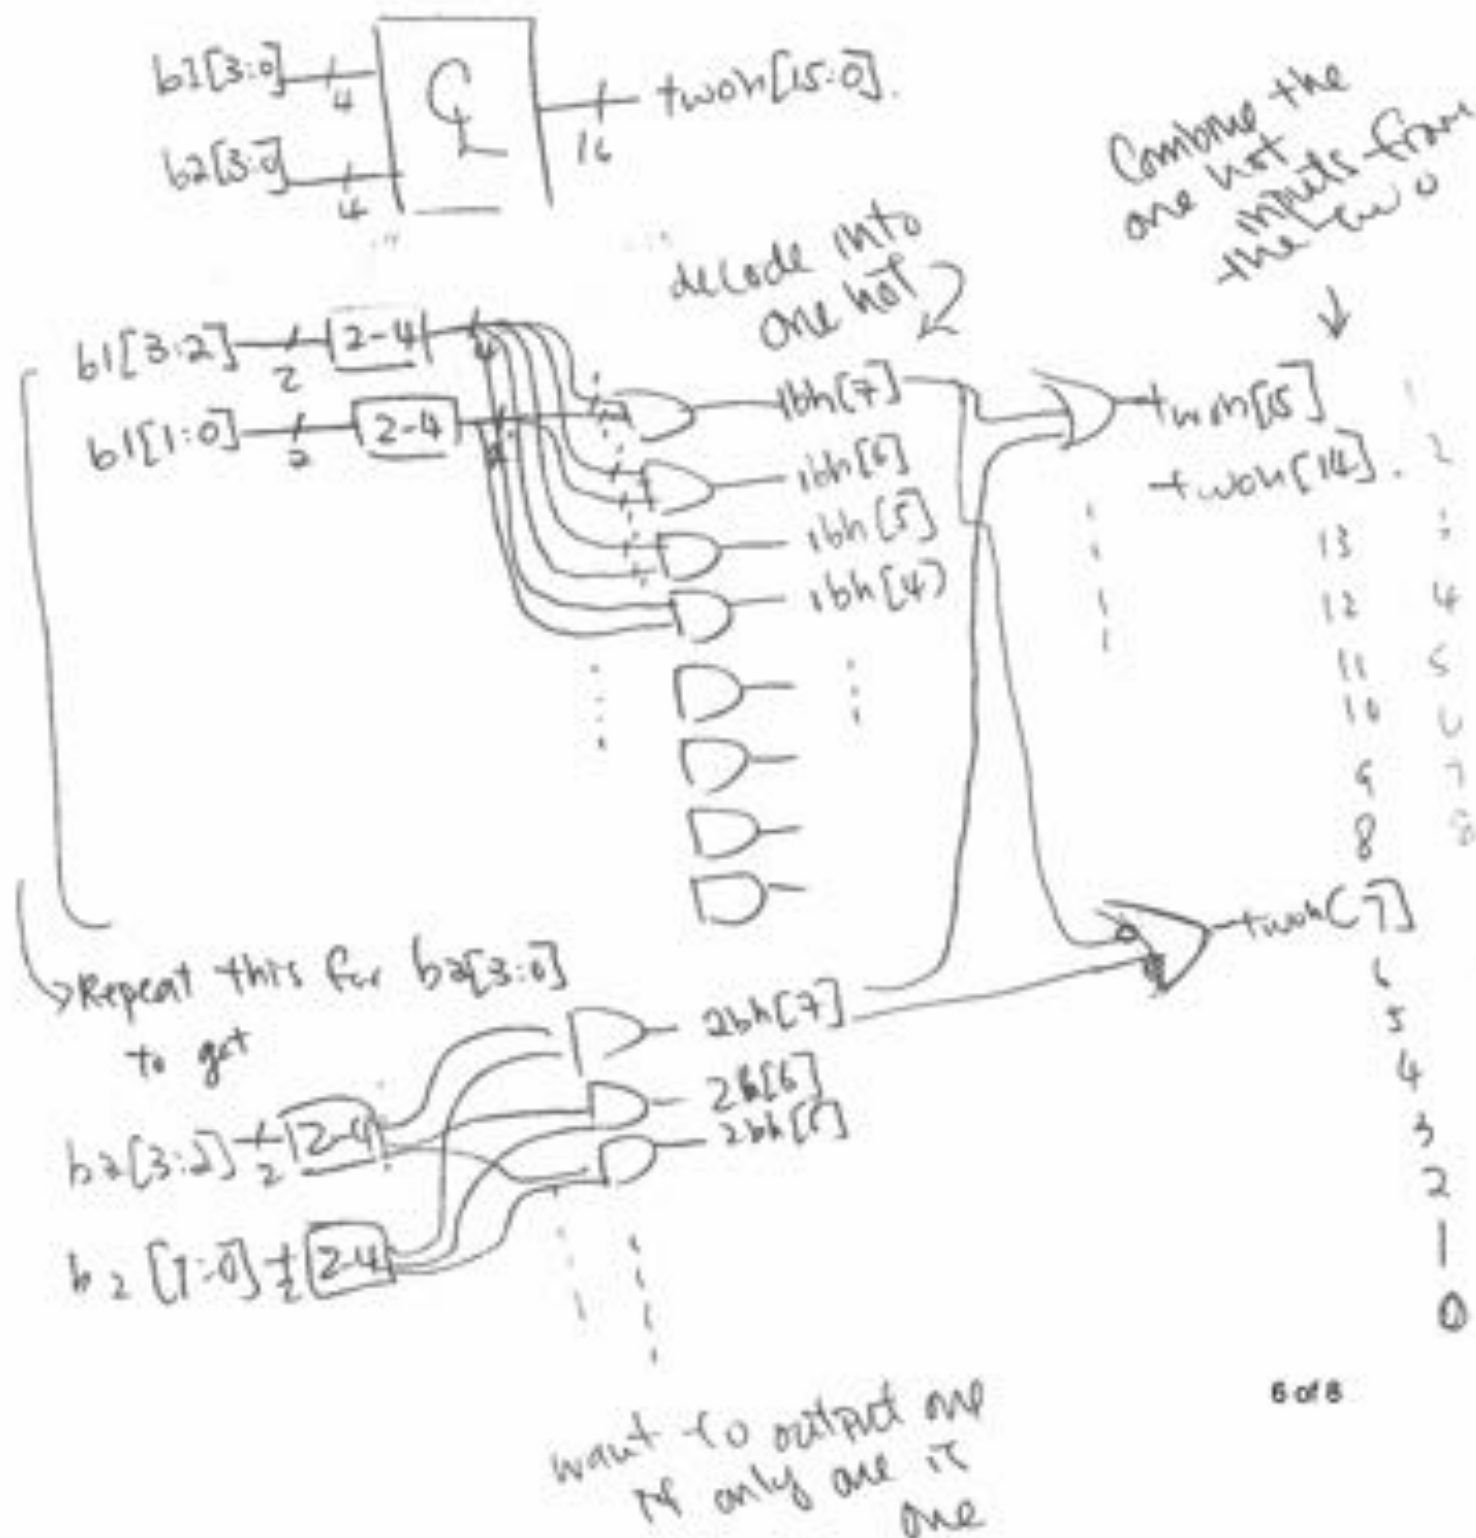 b1[3:0]
4
b2[3:0]
4
CL
16
twoh[15:0].
Combine the
one hot
inputs from
the two
decode into
one hot
b1[3:2]
2
2-4
4
b1[1:0]
2
2-4
4
1bh[7]
1bh[6]
1bh[5]
1bh[4)
twoh[15]
twoh[14].
13
12
11
10
9
8
1
2
3
4
5
6
7
8
twoh(7]
6
5
4
3
2
1
0
Repeat this for b2[3:0]
to get
b2[3:2]
2
2-4
b2[1:0]
2
2-4
2bh[7]
2b[6]
want to output one
if only one is
one
6 of 8